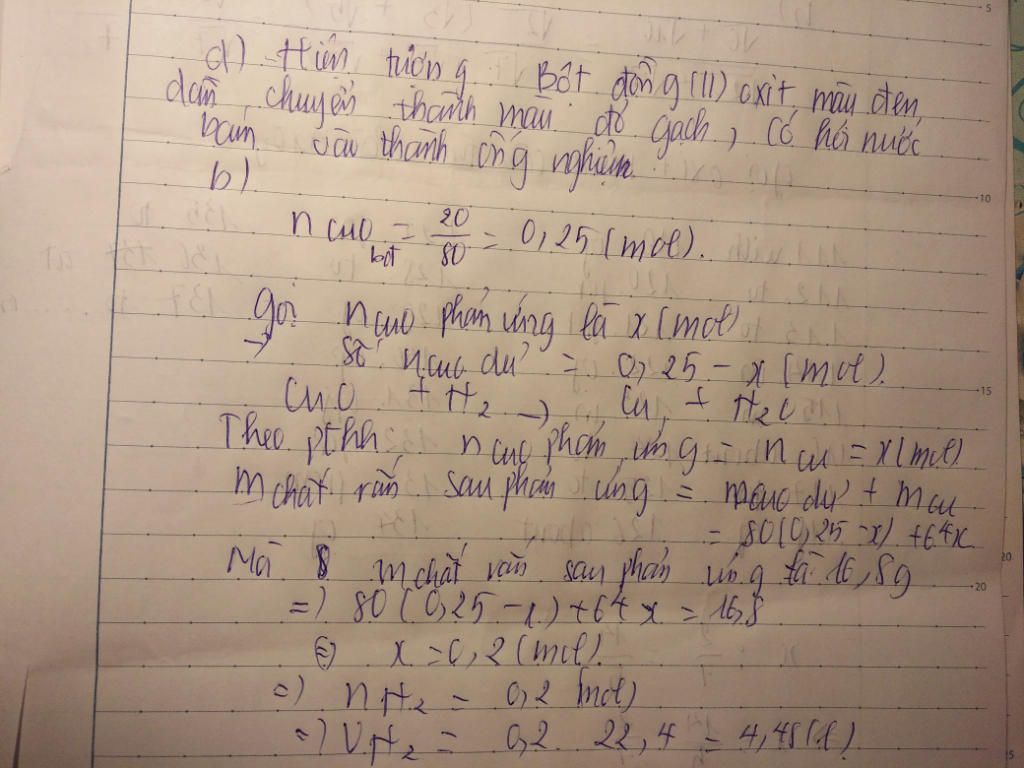 a) Hiện tượng Bột đồng (II) oxit màu đen,
dần chuyển thành màu đỏ gạch, có hơi nước
bám vào thành ống nghiệm.
b)
n CuO bđ = 20/80 = 0,25 (mol).
Gọi n CuO phản ứng là x (mol)
→ số n CuO dư = 0,25 - x (mol).
CuO + H2 → Cu + H2O
Theo pthh, n CuO phản ứng = n Cu = x (mol)
m chất rắn sau phản ứng = m CuO dư + m Cu
= 80(0,25 - x) + 64x
Mà m chất rắn sau phản ứng là 16,8g
=> 80(0,25 - x) + 64x = 16,8
⇔ x = 0,2 (mol).
=> n H2 = 0,2 (mol)
=> V H2 = 0,2 . 22,4 = 4,48 (l)
5
10
15
20